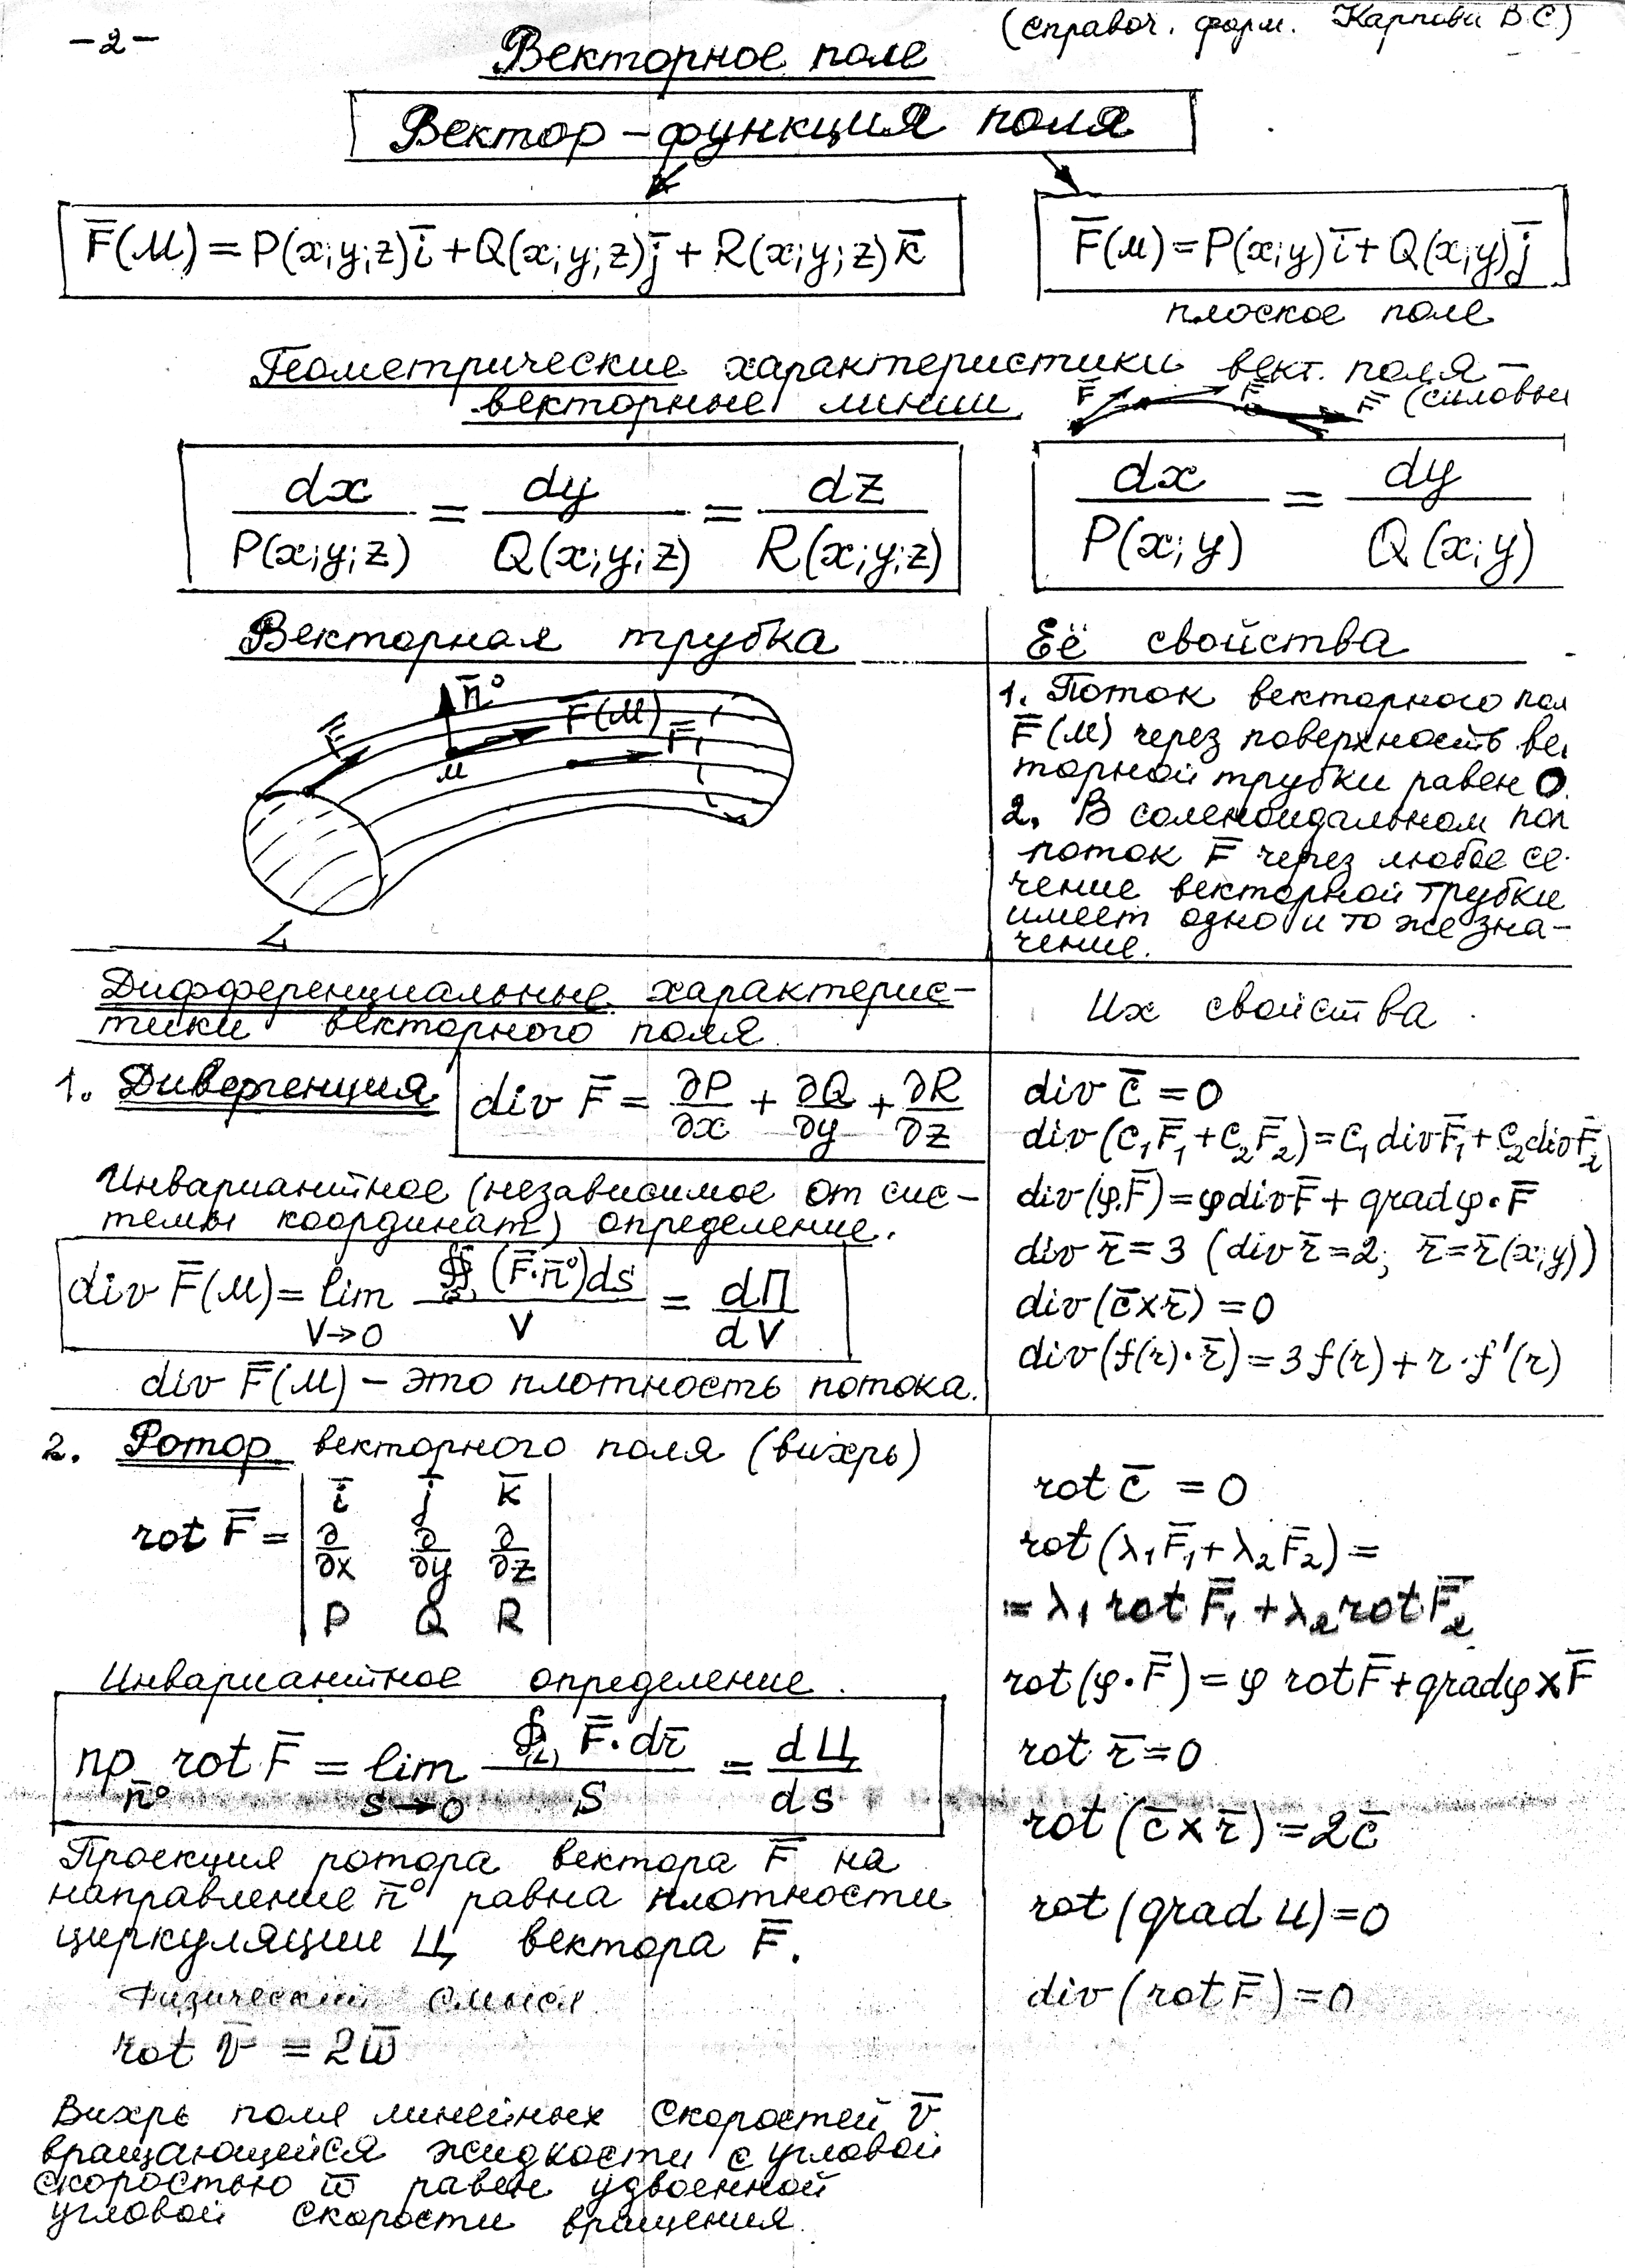 -2-
(справоч. форм. Карпови В С)
Векторное поле
Вектор-функция поля
F̄(M) = P(x;y;z)ī + Q(x;y;z)j̄ + R(x;y;z)k̄
F̄(M) = P(x;y)ī + Q(x;y)j̄
плоское поле
Геометрические характеристики вект. поля –
векторные линии
F̄ F̄ F̄
(силовы
dx/P(x;y;z) = dy/Q(x;y;z) = dz/R(x;y;z)
dx/P(x;y) = dy/Q(x;y)
Векторная трубка
n̄° F̄ F(M) F̄ M
L
Её свойства
1. Поток векторного пол
F̄(M) через поверхность ве
торной трубки равен 0.
2. В соленоидальном пол
поток F̄ через любое се-
чение векторной трубки
имеет одно и то же зна-
чение.
Дифференциальные характерис-
тики векторного поля.
Их свойства
1. Дивергенция
div F̄ = ∂P/∂x + ∂Q/∂y + ∂R/∂z
Инвариантное (независимое от сис-
темы координат) определение.
div F̄(M) = lim V→0 ∯(F̄·n̄°)ds / V = dП/dV
div F̄(M) – это плотность потока.
div c̄ = 0
div(C₁F̄₁ + C₂F̄₂) = C₁ div F̄₁ + C₂ div F̄₂
div(φ·F̄) = φ div F̄ + grad φ · F̄
div r̄ = 3 (div r̄ = 2; r̄ = r̄(x;y))
div(c̄ × r̄) = 0
div(f(r)·r̄) = 3f(r) + r·f'(r)
2. Ротор векторного поля (вихрь)
rot F̄ =
ī j̄ k̄
∂/∂x ∂/∂y ∂/∂z
P Q R
Инвариантное определение.
пр n̄° rot F̄ = lim S→0 ∮(L) F̄·dr̄ / S = dЦ/ds
Проекция ротора вектора F̄ на
направление n̄° равна плотности
циркуляции Ц вектора F̄.
Физический смысл
rot v̄ = 2ω̄
Вихрь поля линейных скоростей v̄
вращающейся жидкости с угловой
скоростью ω̄ равен удвоенной
угловой скорости вращения.
rot c̄ = 0
rot(λ₁F̄₁ + λ₂F̄₂) =
= λ₁ rot F̄₁ + λ₂ rot F̄₂
rot(φ·F̄) = φ rot F̄ + grad φ × F̄
rot r̄ = 0
rot(c̄ × r̄) = 2c̄
rot(grad u) = 0
div(rot F̄) = 0